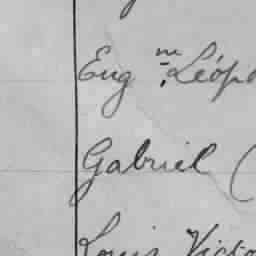 Eugm. Léop
Gabriel (
Louis Victo